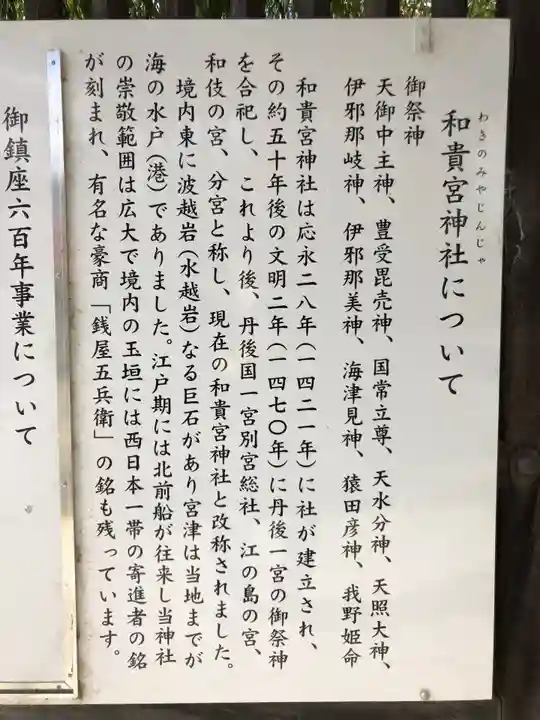 わきのみやじんじゃ
和貴宮神社について
御祭神
天御中主神、豊受毘売神、国常立尊、天水分神、天照大神、
伊邪那岐神、伊邪那美神、海津見神、猿田彦神、我野姫命
和貴宮神社は応永二八年(一四二一年)に社が建立され、
その約五十年後の文明二年(一四七〇年)に丹後一宮の御祭神
を合祀し、これより後、丹後国一宮別宮総社、江の島の宮、
和伎の宮、分宮と称し、現在の和貴宮神社と改称されました。
境内東に波越岩(水越岩)なる巨石があり宮津は当地までが
海の水戸(港)でありました。江戸期には北前船が往来し当神社
の崇敬範囲は広大で境内の玉垣には西日本一帯の寄進者の銘
が刻まれ、有名な豪商「銭屋五兵衛」の銘も残っています。
御鎮座六百年事業について